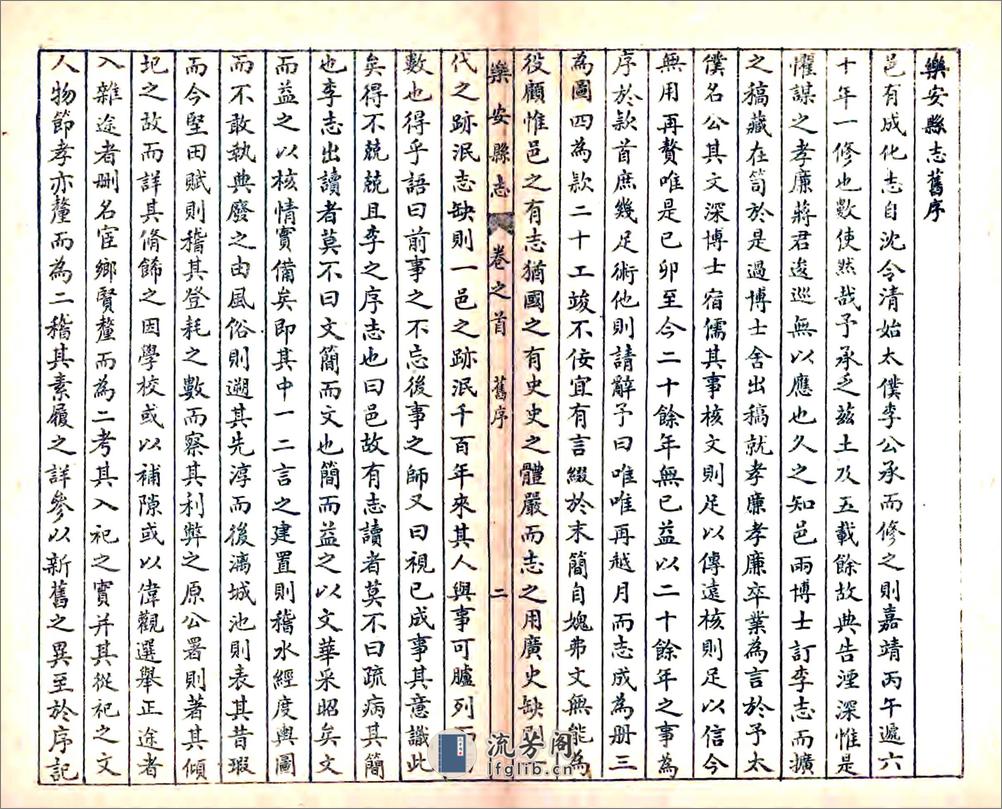 樂安縣志舊序
邑有成化志自沈令清始太僕李公承而修之則嘉靖丙午遞六
十年一修也數使然哉予承乏兹土及五載餘故典告湮深惟是
懼謀之孝廉蔣君逡巡無以應也久之知邑兩博士訂李志而擴
之稿藏在笥於是過博士舍出稿就孝廉孝廉卒業為言於予太
僕名公其文深博士宿儒其事核文則足以傳遠核則足以信今
無用再贅唯是已卯至今二十餘年無已益以二十餘年之事為
序於款首庶幾足術他則請辭予曰唯唯再越月而志成為册三
為圖四為款二十工竣不佞宜有言綴於末簡自塊弗文無能為
役顧惟邑之有志猶國之有史史之體嚴而志之用廣史缺則一
樂安縣志 卷之首 舊序 二
代之跡泯志缺則一邑之跡泯千百年來其人與事可臚列而
數也得乎語曰前事之不忘後事之師又曰視已成事其意識此
矣得不兢兢且李之序志也曰邑故有志讀者莫不曰疏病其簡
也李志出讀者莫不曰文簡而文也簡而益之以文華采昭矣文
而益之以核情實備矣即其中一二言之建置則稽水經度輿圖
而不敢執典廢之由風俗則遡其先淳而後漓城池則表其昔瑕
而今堅田賦則稽其登耗之數而察其利弊之原公署則著其傾
圯之故而詳其脩飾之因學校或以補隙或以偉觀選舉正途者
入雜途者刪名宦鄉賢釐而為二考其入祀之實并其從祀之文
人物節孝亦釐而為二稽其素履之詳參以新舊之異至於序記
流芳阁
lfglib.cn